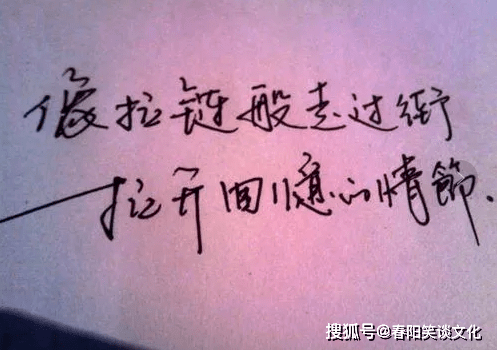 像拉链般走过街
拉开回憶的情節.
搜狐号@春阳笑谈文化